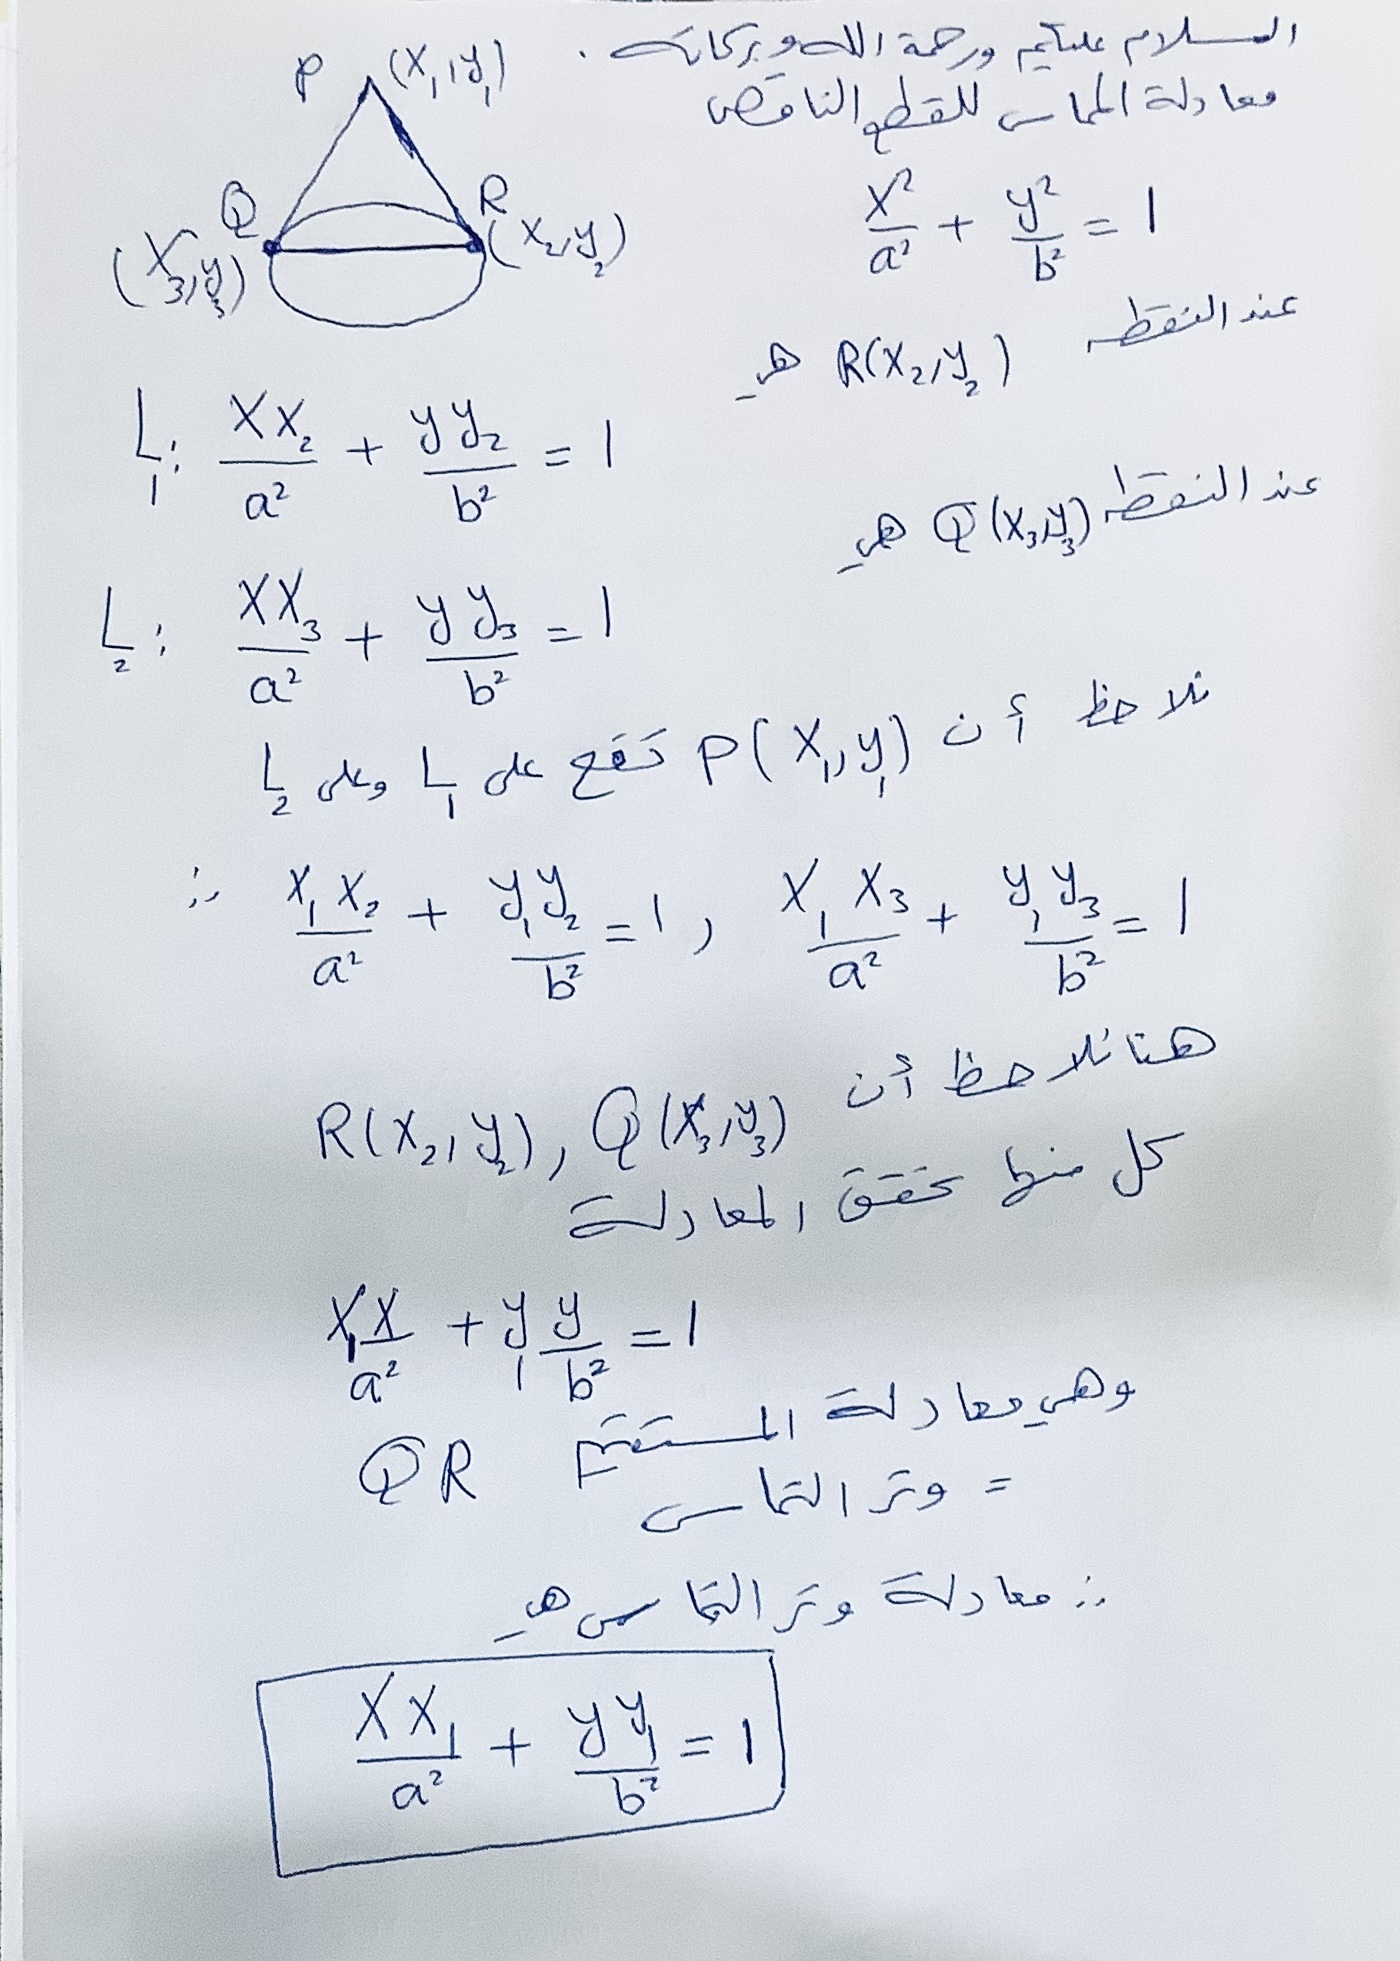 السلام عليكم ورحمة الله وبركاته .
معادلة المماس للقطع الناقص
P (x₁,y₁)
Q (x₃,y₃)
R (x₂,y₂)
x²/a² + y²/b² = 1
عند النقطه R(x₂,y₂) هي
L₁: xx₂/a² + yy₂/b² = 1
عند النقطه Q(x₃,y₃) هي
L₂: xx₃/a² + yy₃/b² = 1
نلاحظ أن P(x₁,y₁) تقع على L₁ وعلى L₂
∴ x₁x₂/a² + y₁y₂/b² = 1 , x₁x₃/a² + y₁y₃/b² = 1
هنا نلاحظ أن R(x₂,y₂), Q(x₃,y₃)
كل منها تحقق المعادلة
x₁x/a² + y₁y/b² = 1
وهي معادلة المستقيم QR
= وتر التماس
∴ معادلة وتر التماس هي
xx₁/a² + yy₁/b² = 1